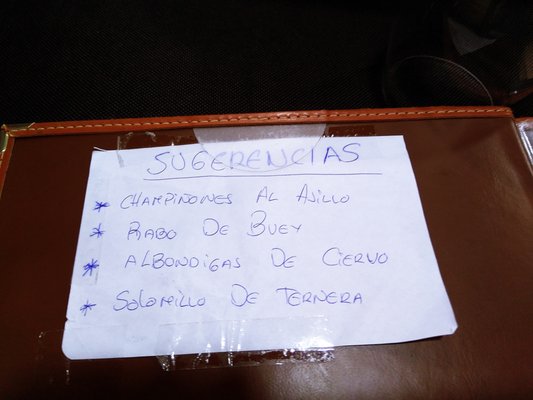 SUGERENCIAS
* CHAMPIÑONES AL AJILLO
* RABO DE BUEY
* ALBONDIGAS DE CIERVO
* SOLOMILLO DE TERNERA